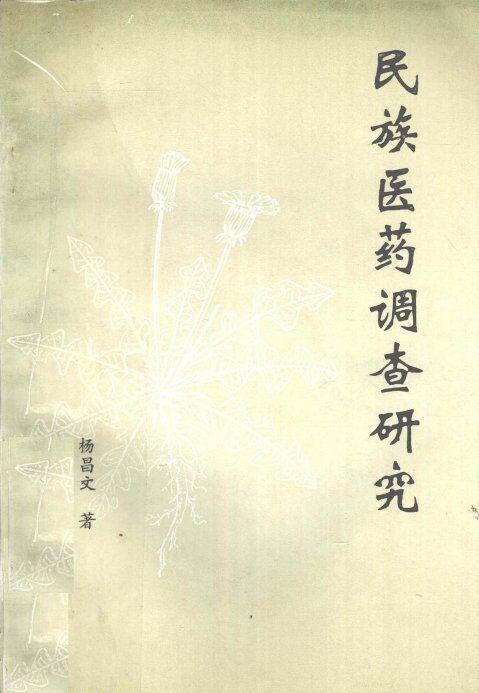 民族医药调查研究
杨昌文 著